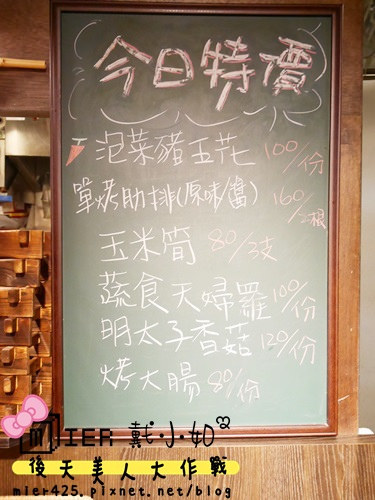 今日特價
泡菜豬五花 100/份
單烤肋排(原味/醬) 160/2根
玉米筒 80/3支
蔬食天婦羅 100/份
明太子香菇 120/份
烤大腸 80/份
MIER 戴小如
後天美人大作戰
mier425.pixnet.net/blog